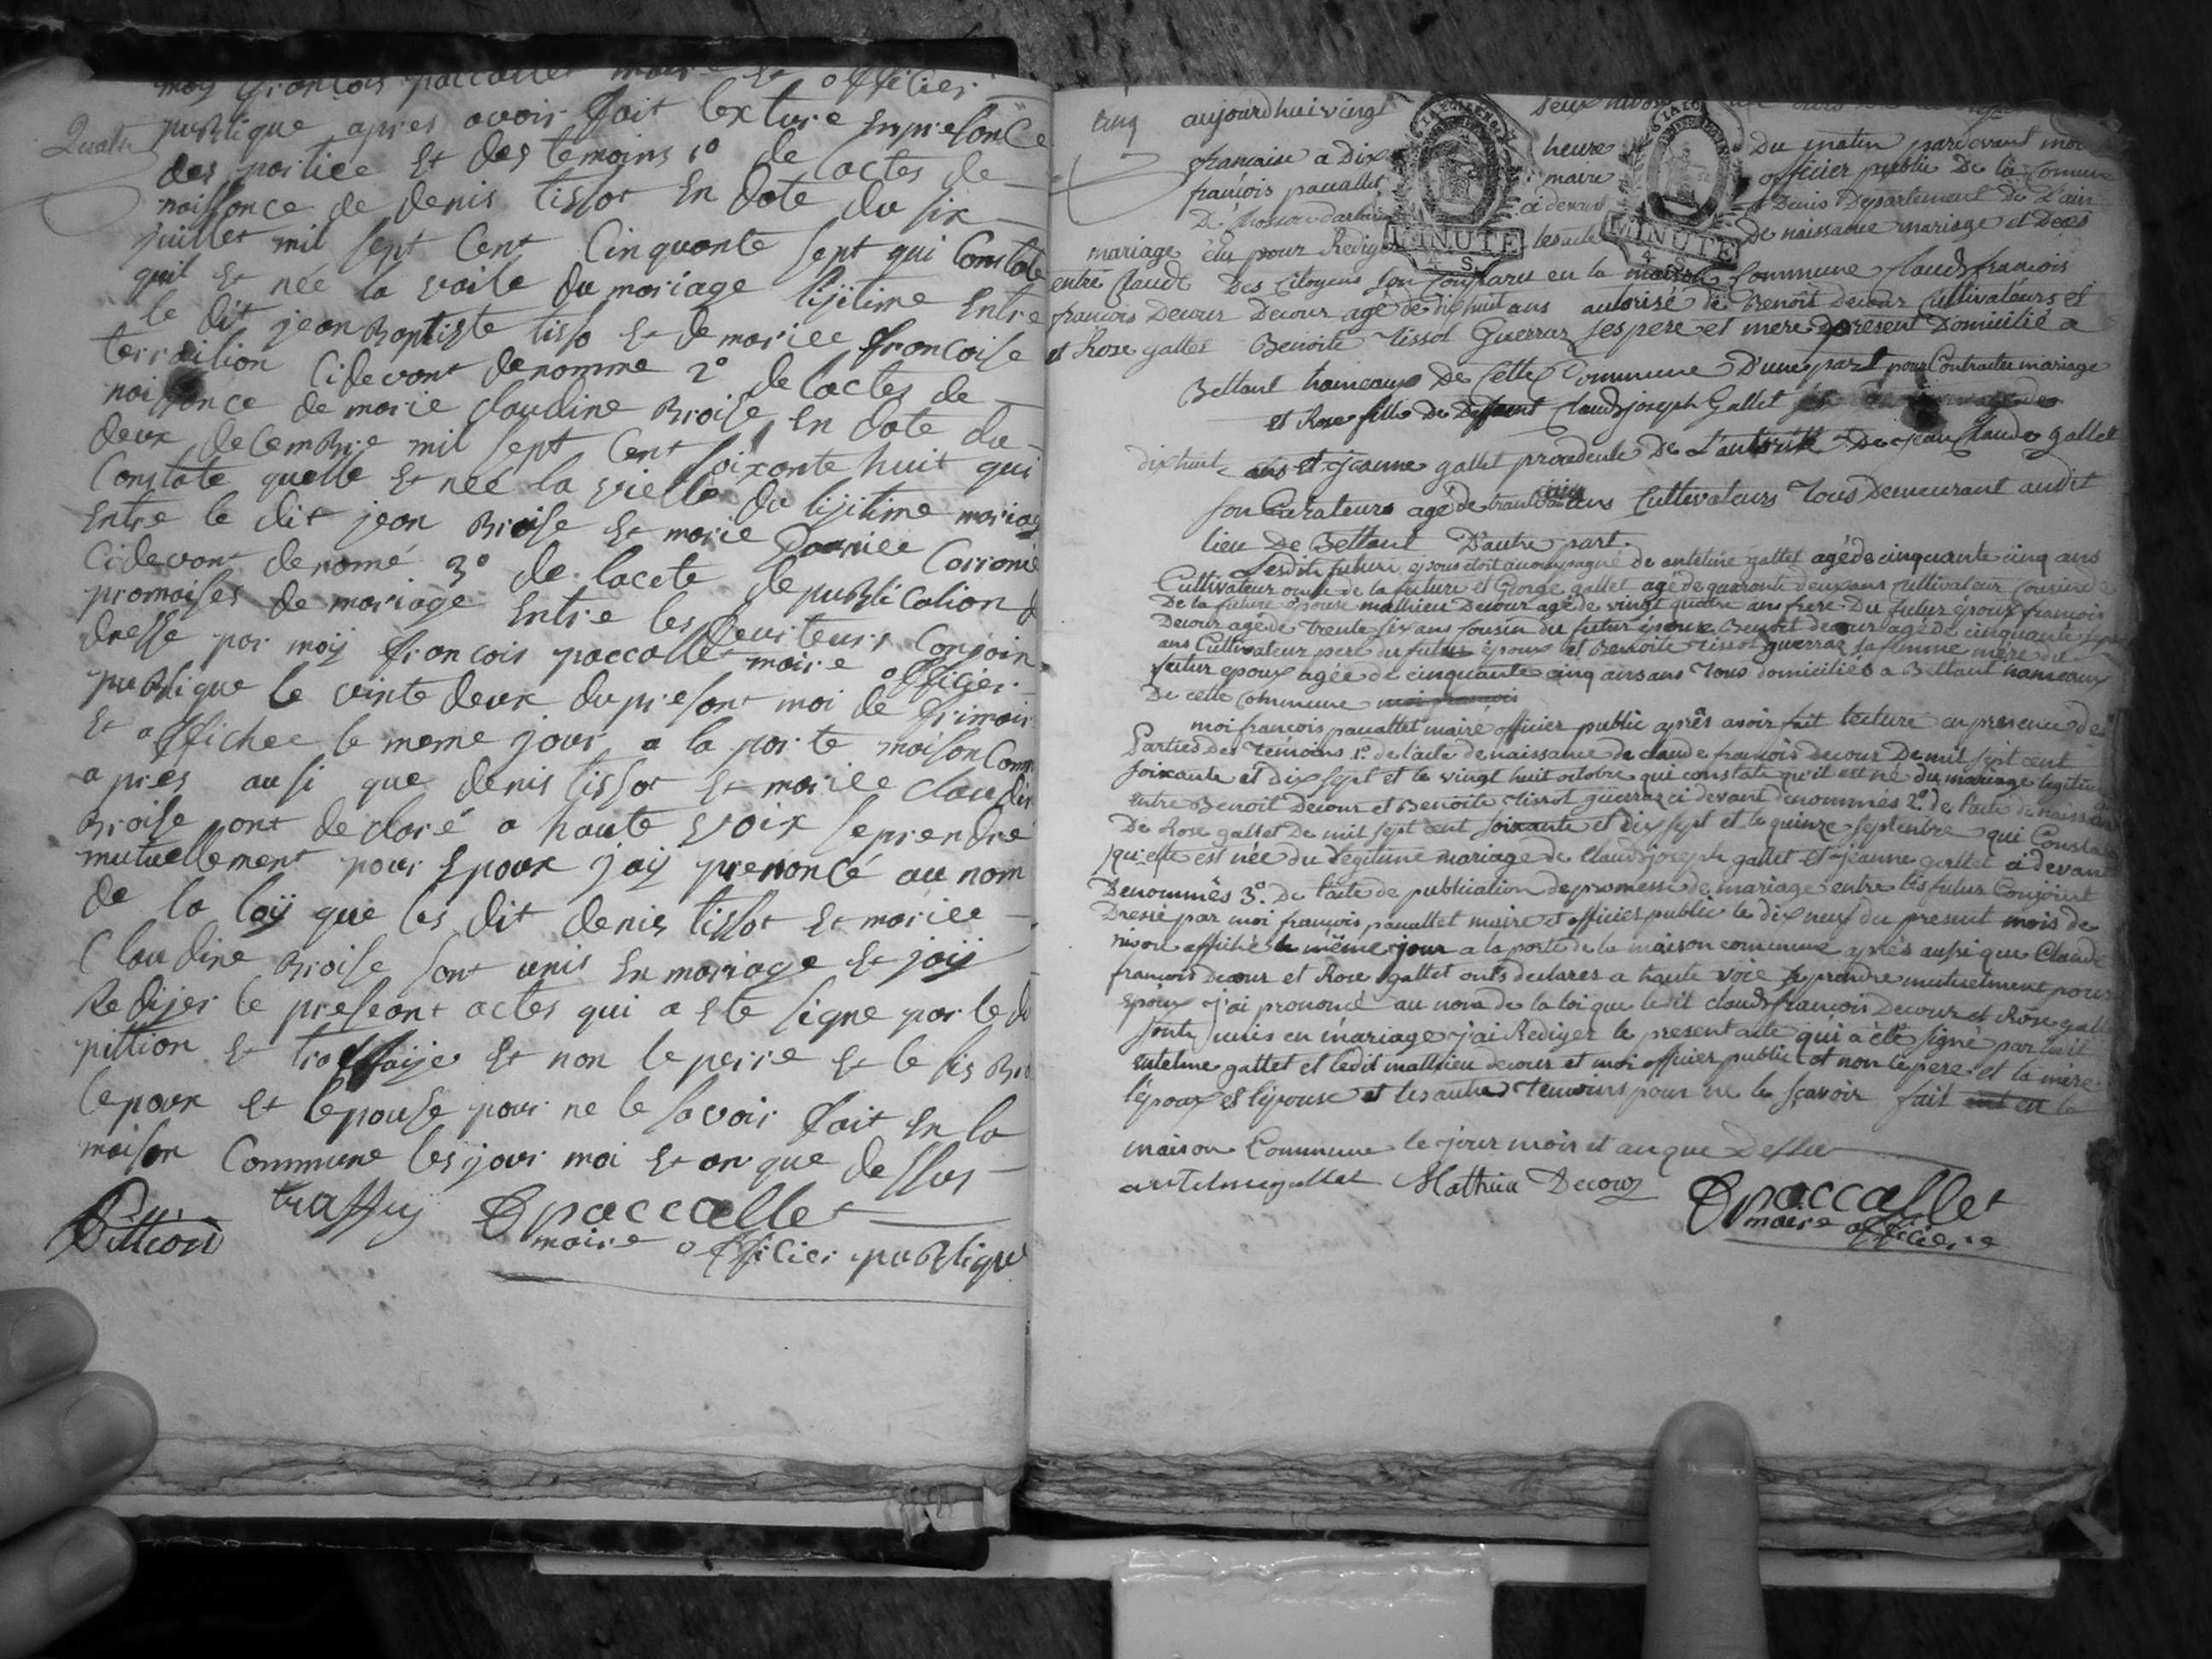 moy francois paccallet maire Et officier
Quatre
publique apres avoir fait lexture En presence
des partiee Et des temoins 1° de lactes de
naissence de denis tissot En date du six
juillet mil sept Cent Cinquante sept qui Constate
quil Et née la vaile du mariage lijitime Entre
le dit jean Baptiste tisso Et de mariee francoise
terraition Cidevant denomme 2° de lactes de
naissence de marie claudine Broise En date du
deux decembre mil sept Cent soixante huit qui
Constate quelle Et née la vielle du lijitime mariag
Entre le dit jean Broise Et marie
Cidevant denomé 3° de lacete de publication d
promaises de mariage Entre les
dresse par moy francois paccallet maire officier
publique le vinte deux du presant moi de frimair
Et affichee le meme jour a la porte maison Comm
apres ausi que denis tissot Et mariee claudin
Broise ont declaré a haute voix se prendre
mutuellement pour Epoux jay prenoncé au nom
de la loÿ que les dit denis tissot Et mariee
Claudine Broise sont unis En mariage Et jaÿ
Redijer le preseant actes qui a Ete signe par le d
pittion Et traffaije Et non le perre Et le fis Bro
lepoux Et lepouse pour ne le savoir fait En la
maison Commune les jour moi Et an que dessus
Pittion traffey paccallet
maire officier publique
cinq aujourdhui vingt deux nivose
francaise a Dix heure Du matin pardevant moi
francois paccallet maire officier public De la Comune
D. ci devant Denis Departement De L'ain
mariage élu pour Rediger les acte De naissance mariage et Deces
entre Claude Des Citoyens son Comparu en la maison Commune Claude francois
francois Decour Decour age de dixhuit ans autorisé de Benoit Decour Cultivateurs et
et Rose gallet Benoite Tissot Guerraz ses pere et mere present Domicilié a
Bettant hameaux De Cette Commune D'une part pour Contracter mariage
et Rose fille De Deffunt Claude joseph Gallet
dixhuit ans et Jeanne gallet procedente De L'autorité De Jean Claude gallet
son Curateurs agé de ans Cultivateurs Tous Demeurant audit
lieu De Bettant D'autre part.
Lesdits futur epoux etoit accompagné de antelme gallet agé de cinquante cinq ans
Cultivateur oncle de la future et George gallet agé de quarante deux ans cultivateur cousin de
De la future épouse mathieu Decour agé de vingt quatre ans frere Du futur époux francois
Decour agé de trente six ans cousin du futur époux Benoit decour agé De cinquante sept
ans Cultivateur pere du futur époux et Benoite tissot guerraz sa femme mere du
futur epoux agée de cinquante cinq ans ans Tous domiciliés a Bettant hameaux
De cette Commune moi francois
moi francois paccallet maire officier public après avoir fait lecture en presence des
Parties Des Temoins 1° de l'acte de naissance de claude francois Decour De mil sept cent
soixante et Dix sept et le vingt huit octobre qui constate qu'il est né du mariage legitime
entre Benoit Decour et Benoite tissot guerraz ci devant denommés 2° de l'acte de naissance
De Rose gallet De mil sept cent soixante et dix sept et le quinze septembre qui Constate
qu'elle est née du Legitime mariage de Claude joseph gallet et jeanne gallet ci devant
Denommés 3° De l'acte de publication de promesse de mariage entre les futur Conjoint
Dressé par moi francois paccallet maire et officier public le dix neuf du present mois de
nivose affiché le même jour a la porte de la maison commune après aussi que Claude
francois Decour et Rose gallet ont declarer a haute voie se prendre mutuelment pour
Epoux j'ai prononcé au nom de la loi que ledit claude francois Decour et Rose gallet
sont unis en mariage j'ai Rediger le present acte qui a été signé par ledit
antelme gallet et ledit mathieu decour et moi officier public et non le pere et la mère
l'époux et l'épouse et les autres temoins pour ne le sçavoir fait en la
maison Commune le jour mois et an que Dessus
antelme gallet Mathieu Decour paccallet
maire officier
MINUTE
4 S
MINUTE
4 S